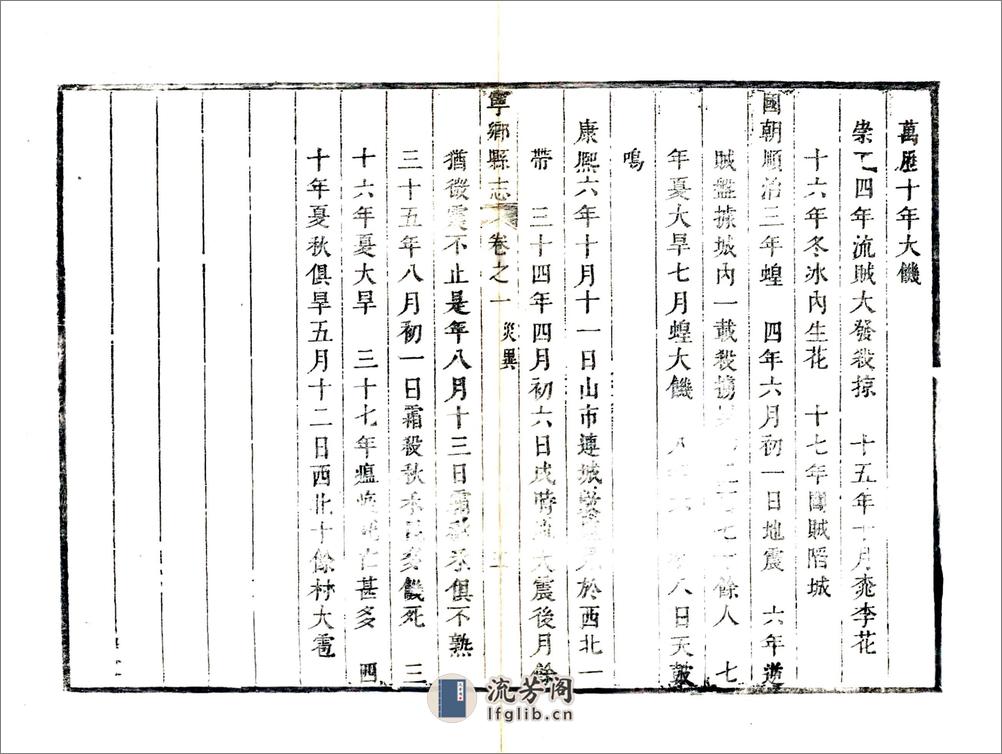 萬歷十年大饑
崇 四年流賊大發殺掠　十五年十月桃李花
十六年冬冰內生花　十七年闖賊陷城
國朝順治三年蝗　四年六月初一日地震　六年逆
賊盤據城內一載殺擄 餘人　七
年夏大旱七月蝗大饑　八年 八日天鼓
鳴
康熙六年十月十一日山市連城 於西北一
帶　三十四年四月初六日戌時 大震後月餘
寧鄉縣志 卷之一 災異
猶微震不止是年八月十三日霜殺禾俱不熟
三十五年八月初一日霜殺秋禾民多饑死　三
十六年夏大旱　三十七年瘟 亡甚多　四
十年夏秋俱旱五月十二日西北十餘村大雹
流芳阁
lfglib.cn